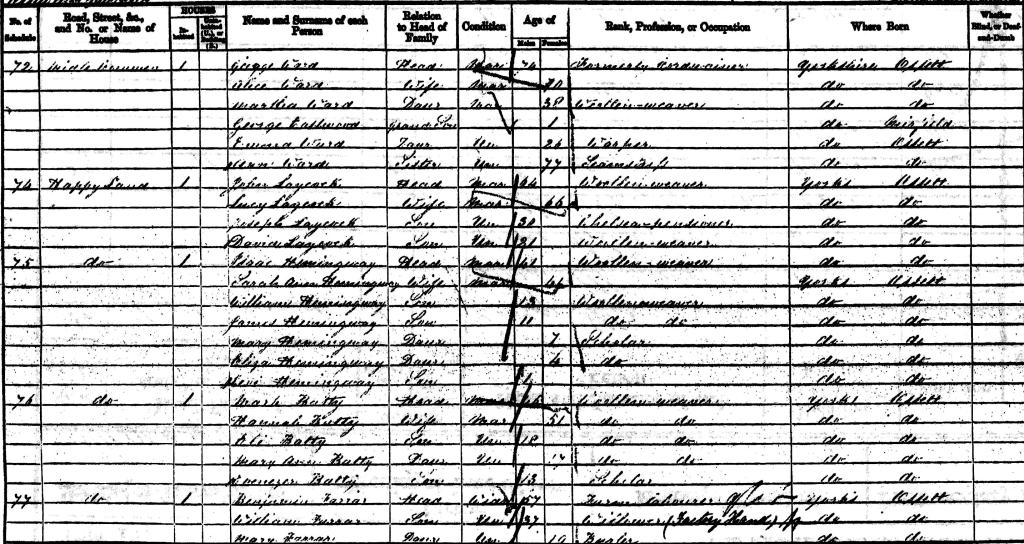 No. of Schedule Road, Street, &c., and No. or Name of House HOUSES Inhabited Uninhabited (U.), or Building (B.) Name and Surname of each Person Relation to Head of Family Condition Age of Males Females Rank, Profession, or Occupation Where Born Whether Blind, or Deaf-and-Dumb
72 Midle Common 1 George Ward Head Mar 74 Formerly Cordwainer Yorkshire Ossett
Alice Ward Wife Mar 70 do do
Martha Ward Daur 38 Woollen-weaver do do
George Eastwood Grand Son 1 do Mirfield
Emma Ward Daur Un 26 Warper do Ossett
Ann Ward Sister Un 77 do do
74 Happy Land 1 John Laycock Head Mar 64 Woollen-weaver Yorks Ossett
Lucy Laycock Wife Mar 66 do do
Joseph Laycock Son Un 30 Chelsea-pensioner do do
David Laycock Son Un 21 Woollen-weaver do do
75 do 1 Isaac Hemingway Head Mar 41 Woollen-weaver do do
Sarah Ann Hemingway Wife Mar 44 Yorks Ossett
William Hemingway Son 13 Woollen-weaver do do
James Hemingway Son 11 do do do do
Mary Hemingway Daur 7 Scholar do do
Eliza Hemingway Daur 4 do do do
Hemingway Son 1 do do
76 do 1 Mark Batty Head Mar Woollen-weaver Yorks Ossett
Hannah Batty Wife Mar 51 do do do do
Eli Batty Son Un 18 do do do do
Mary Ann Batty Daur Un 17 do do do do
Ebenezer Batty Son 13 Scholar do do
77 do 1 Benjamin Farrar Head 57 Farm Labourer Yorks Ossett
William Farrar Son Un 37 (Factory Hand) do do
Mary Farrar Daur Un 19 do do